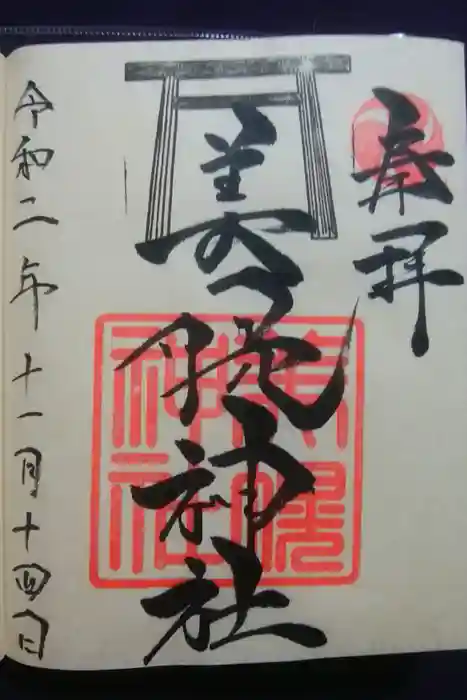 奉拝
美幌神社
令和二年十一月十四日
美幌
神社